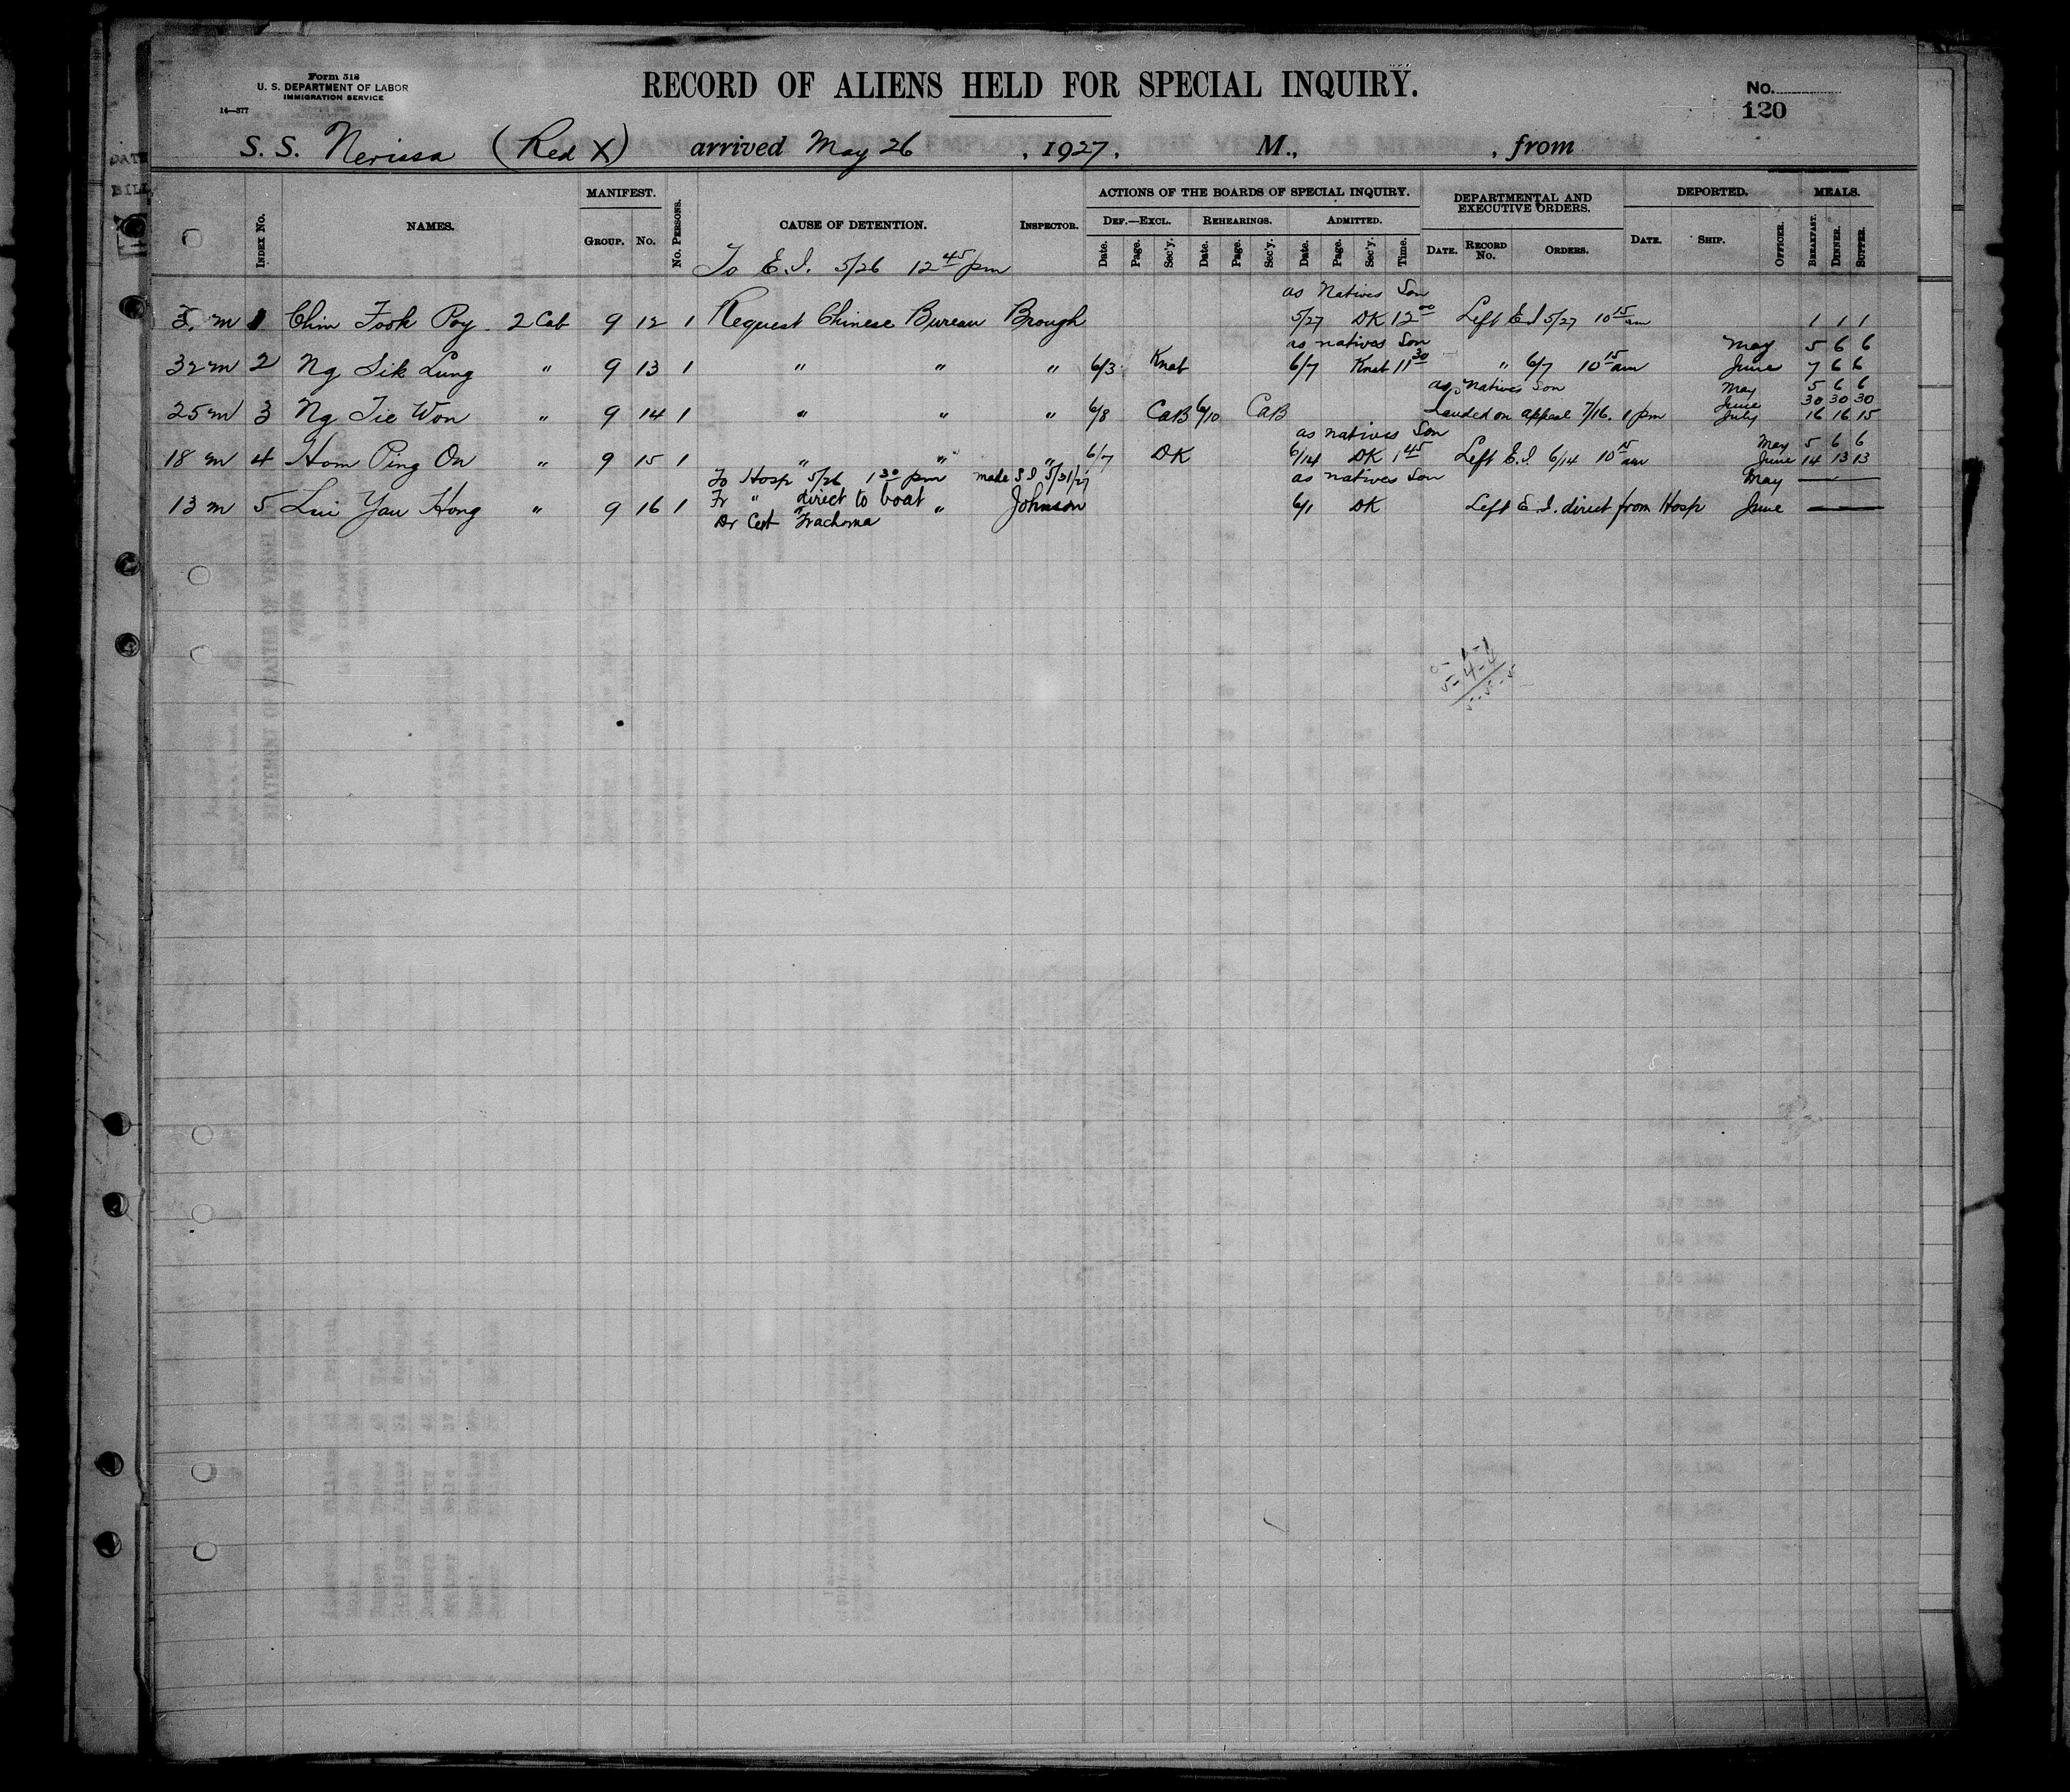 Form 518
U. S. DEPARTMENT OF LABOR
IMMIGRATION SERVICE
14—377
RECORD OF ALIENS HELD FOR SPECIAL INQUIRY.
No.
120
S. S. Nerissa (Red X) arrived May 26, 1927, M., , from
INDEX No. NAMES. MANIFEST. GROUP. No. No. PERSONS. CAUSE OF DETENTION. INSPECTOR. ACTIONS OF THE BOARDS OF SPECIAL INQUIRY. DEPARTMENTAL AND EXECUTIVE ORDERS. DEPORTED. MEALS.
DEF.—EXCL. REHEARINGS. ADMITTED.
Date. Page. Sec'y. Date. Page. Sec'y. Date. Page. Sec'y. Time. DATE. RECORD No. ORDERS. DATE. SHIP. OFFICER. BREAKFAST. DINNER. SUPPER.
To E.I. 5/26 12 45 pm
as Natives Son
m 1 Chin Fook Poy 2 Cab 9 12 1 Request Chinese Bureau Brough 5/27 DK 12 00 Left E I 5/27 10 15 am 1 1 1
as natives Son May 5 6 6
32 m 2 Ng Sik Lung " 9 13 1 " " " 6/3 Knat 6/7 Knat 11 30 " 6/7 10 15 am June 7 6 6
as Natives Son May 5 6 6
June 30 30 30
25 m 3 Ng Tie Won " 9 14 1 " " " 6/8 CaB 6/10 CaB Landed on appeal 7/16. 1 pm July 16 16 15
as natives Son May 5 6 6
18 m 4 Hom Ping On " 9 15 1 " " " 6/7 DK 6/14 DK 1 45 Left E.I. 6/14 10 15 am June 14 13 13
To Hosp 5/26 1 30 pm made S I 5/31/27 as natives Son May —
13 m 5 Lui Yau Hong " 9 16 1 Fr " direct to boat " Johnson 6/1 DK Left E.I. direct from Hosp June —
Dr Cert Trachoma